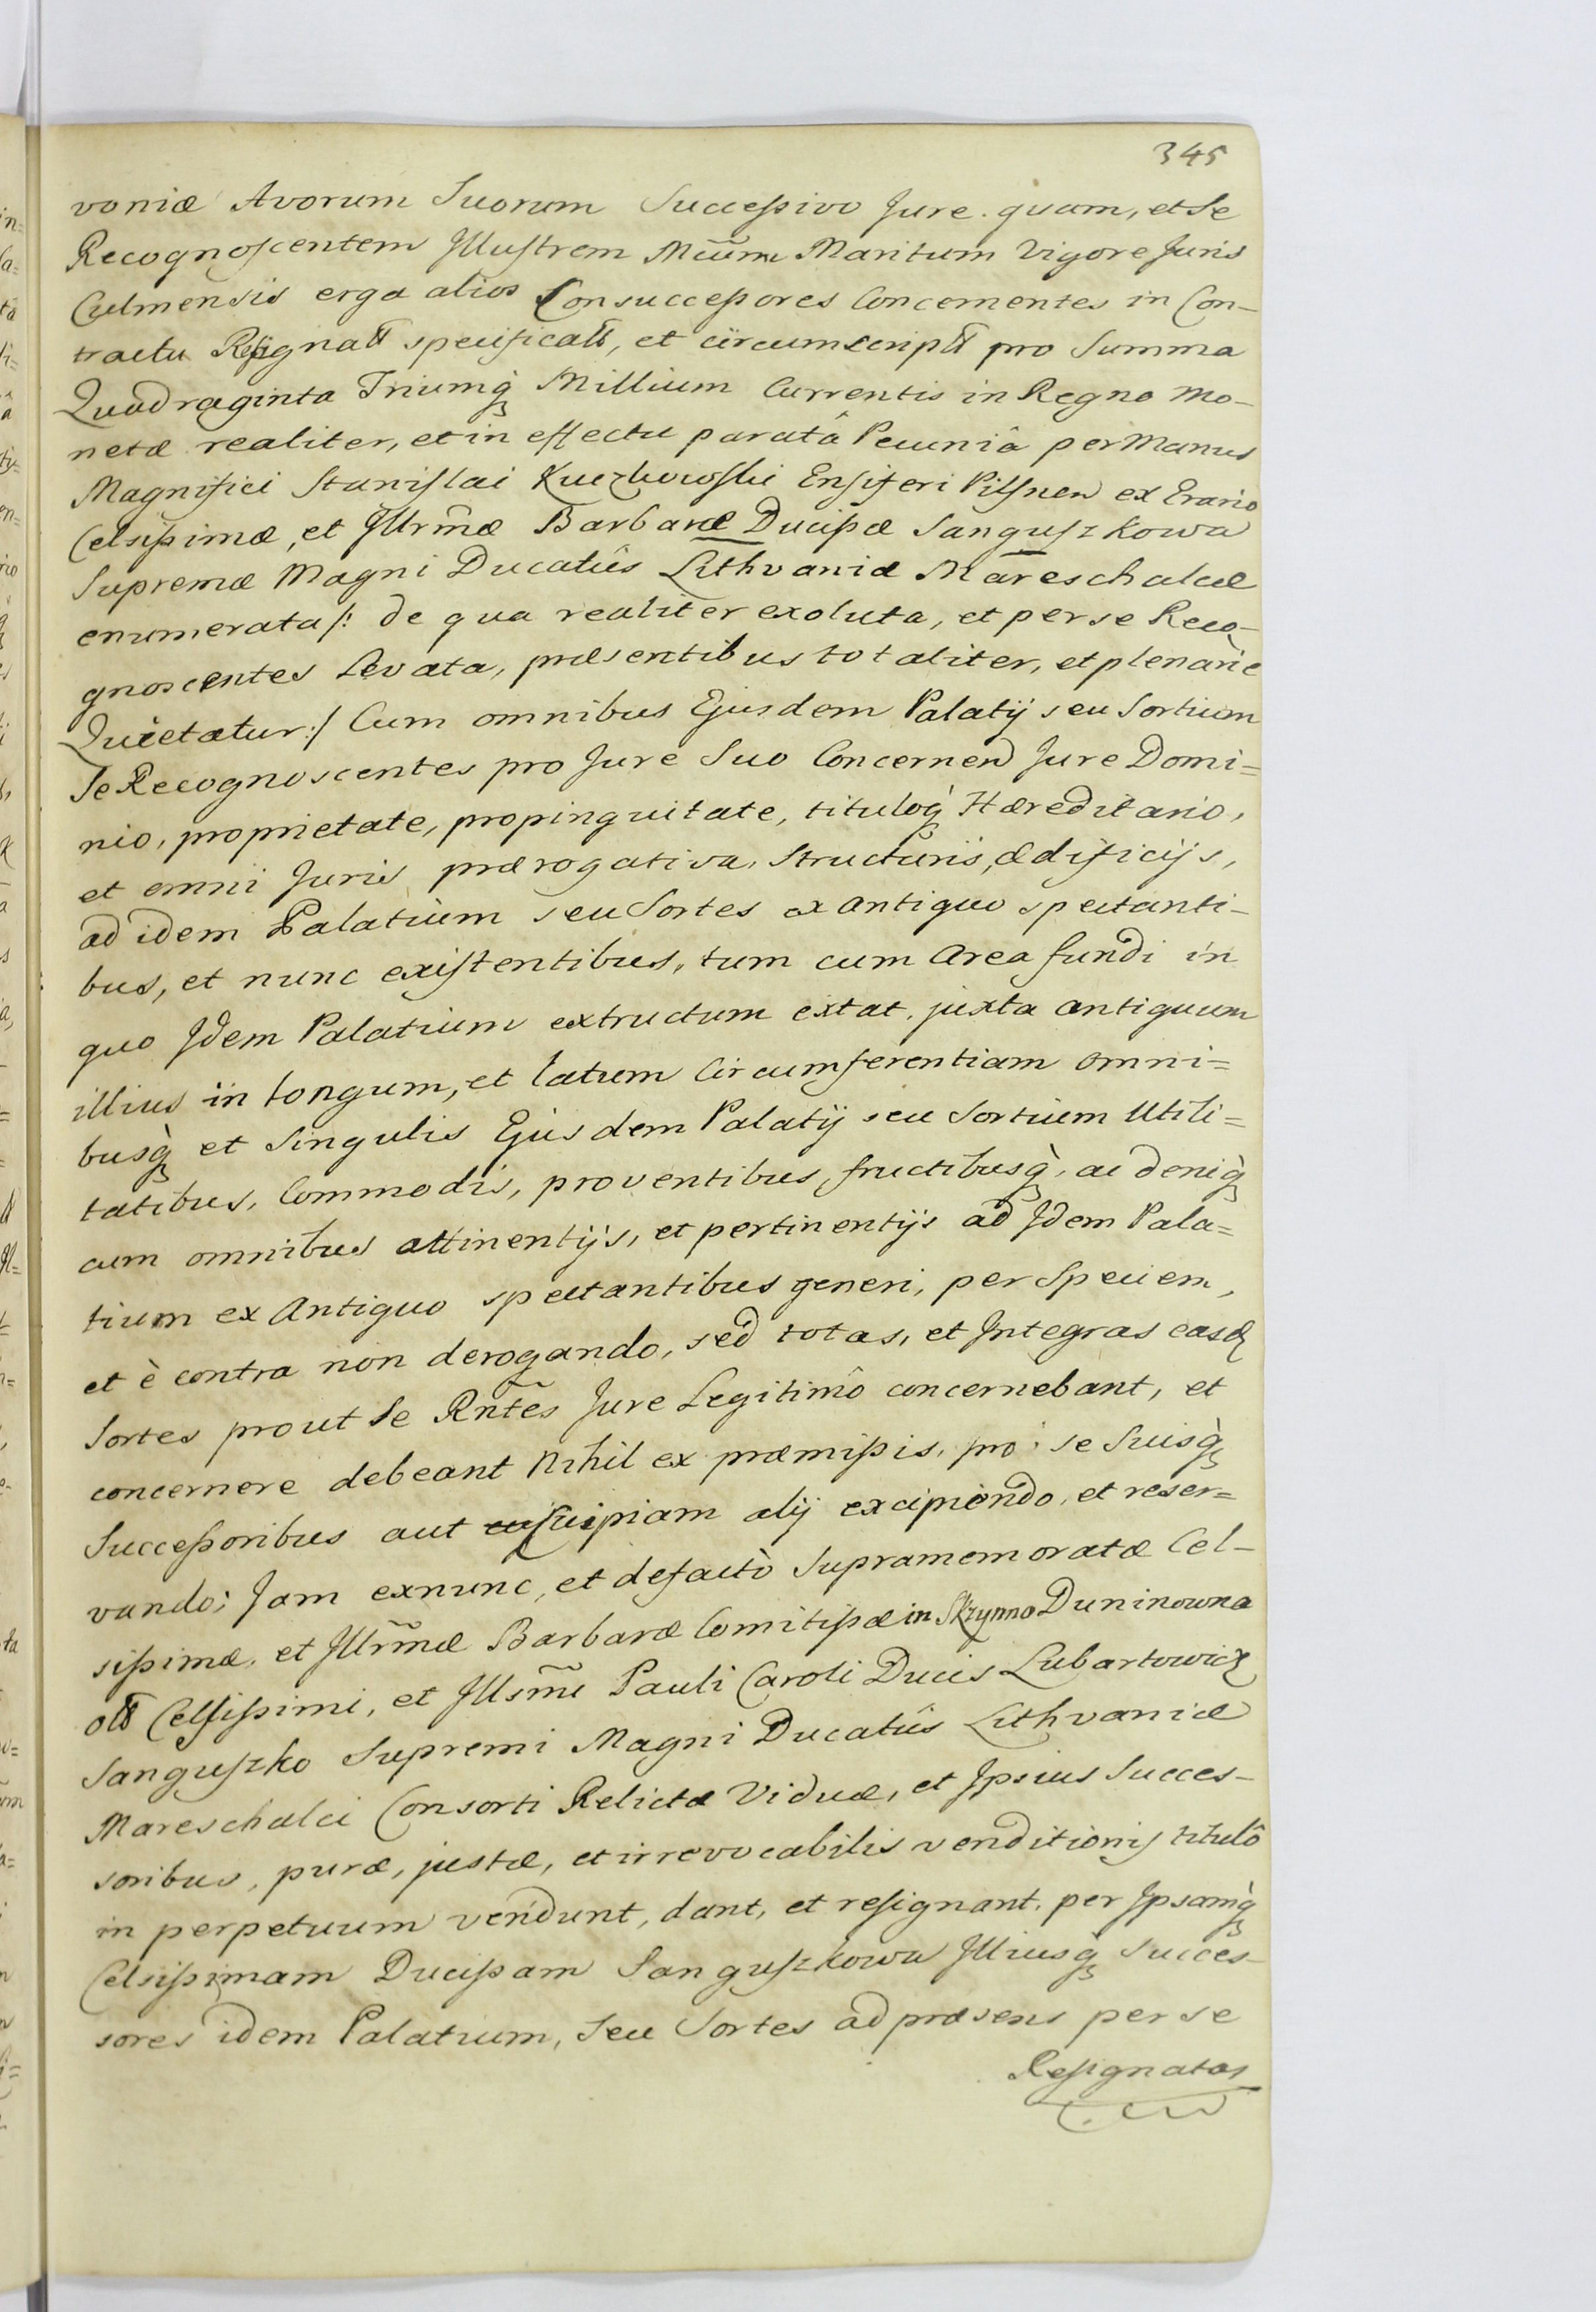 345
voniæ Avorum Suorum Succeßivo Jure. quam, et Se
Recognoscentem Jllustrem Mcũm Maritum Vigore Juris
Culmensis erga alios Consucceßores Concernentes in Con-
tractu Resignatt specificatt, et circumscriptt pro Summa
Quadraginta Triumq̀ Millium Currentis in Regno Mo-
netæ realiter, et in effectu paratâ Pecuniâ per Manus
Magnifici Stanislai Kuczkowski Ensiferi Pilsnen ex Erario
Celsißimæ, et Jllrm̃æ Barbaræ Ducißæ Sanguszkowa
Supremæ Magni Ducatûs Lithvaniæ Mareschalcæ
enumerata /: de qua realiter exoluta, et per se Reco-
gnoscentes Levata, præsentibus totaliter, et plenariè
Quietatur :/ Cum omnibus Ejusdem Palatij seu Sortium
Se Recognoscentes pro Jure Suo Concernen Jure Domi=
nio, proprietate, propinquitate, tituloq̀ Hæreditario,
et omni Juris prærogativa, Structuris, ædificijs,
ad idem Palatium seu Sortes ex antiquo spectanti-
bus, et nunc existentibus, tum cum Area fundi in
quo Jdem Palatium extructum extat, juxta antiquum
illius in longum, et latum Circumferentiam omni=
busq̀ et Singulis Ejusdem Palatij seu Sortium Utili=
tatibus, Commodis, proventibus, fructibusq̀, ac deniq̀
cum omnibus attinentijs, et pertinentijs ad Jdem Pala=
tium ex Antiquo spectantibus generi, per Speciem,
et è contra non derogando, sed totas, et Jntegras easd
Sortes prout Se Rñtẽs Jure Legitimô concernebant, et
concernere debeant Nihil ex præmißis, pro se Suisq̀
Succeßoribus aut cuipiam alij excipiendo, et reser=
vando; Jam exnunc, et defactò Supramemoratæ Cel-
sißimæ, et Jllrm̃æ Barbaræ Comitißæ in Skrzynno Duninowna
ott Celsißimi, et Jllsm̃i Pauli Caroli Ducis Lubartowicz
Sanguszko Supremi Magni Ducatûs Lithvaniæ
Mareschalci Consorti Relictæ Viduæ, et Jpsius Succes-
soribus, puræ, justæ, et irrevocabilis venditionis titulô
in perpetuum vendunt, dant, et resignant, per Jpsamq̀
Celsißimam Ducißam Sanguszkowa Jlliusq̀ Succes-
sores idem Palatium, Seu Sortes ad præsens per se
Resignatas